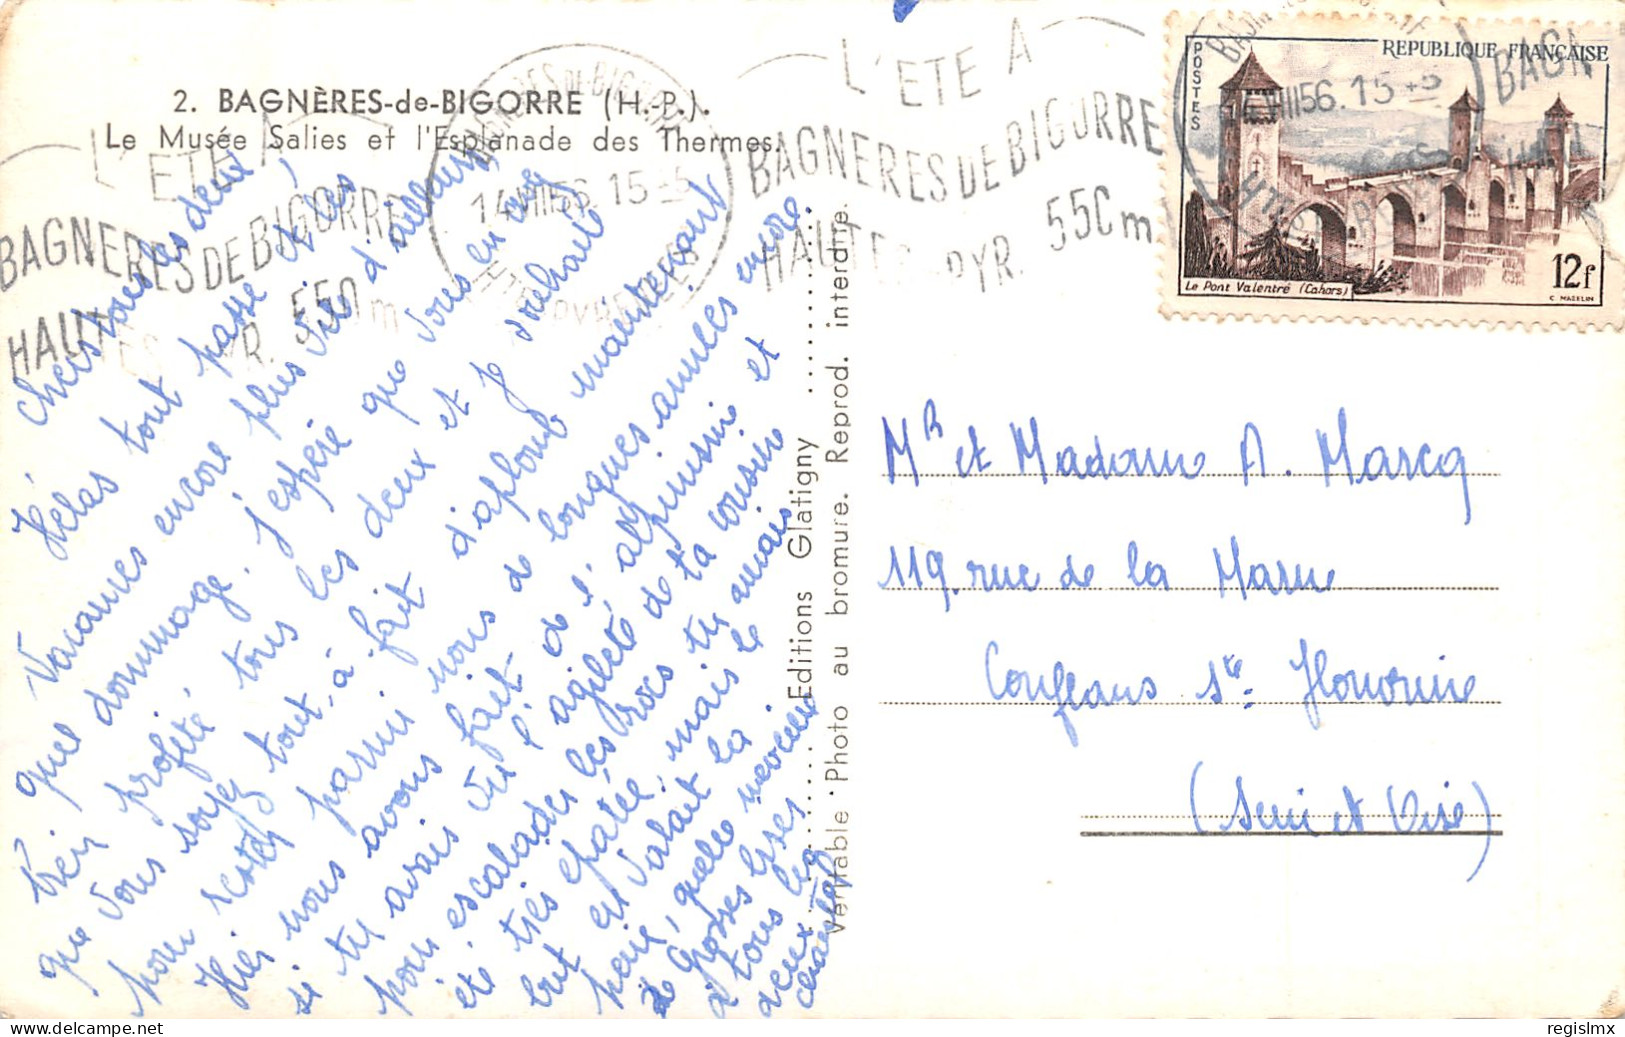 2. BAGNÈRES-de-BIGORRE (H.-P.).
Le Musée Salies et l'Esplanade des Thermes.
L'ETE A
BAGNERES DE BIGORRE
HAUTES PYR. 550m
BAGNERES DE BIGORRE
14 VIII 56. 15 - 5
HTES PYRENEES
L'ETE A
BAGNERES DE BIGORRE
HAUTES PYR. 550m
14 VIII 56. 15 - 5
BAGN
POSTES
REPUBLIQUE FRANÇAISE
Le Pont Valentré (Cahors)
12f
C. MAZELIN
Chers tous les deux,
Hélas tout passe et les
Vacances encore plus vite d'ailleurs,
quel dommage. J'espère que vous en avez
bien profité tous les deux et je souhaite
que vous soyez tout à fait d'aplomb maintenant
pour rester parmi nous de longues années encore
Hier nous avons fait de l'alpinisme et
si tu avais vu l'agilité de ta cousine
pour escalader les rocs tu aurais
été très épatée, mais le
but en valait la
peine, quelle merveille
de grosses bises
à tous les
deux
Editions Glatigny
Véritable Photo au bromure. Reprod. interdre.
Mr et Madame A. Marcq
119, rue de la Marne
Conflans Ste Honorine
(Seine et Oise)
regislmx